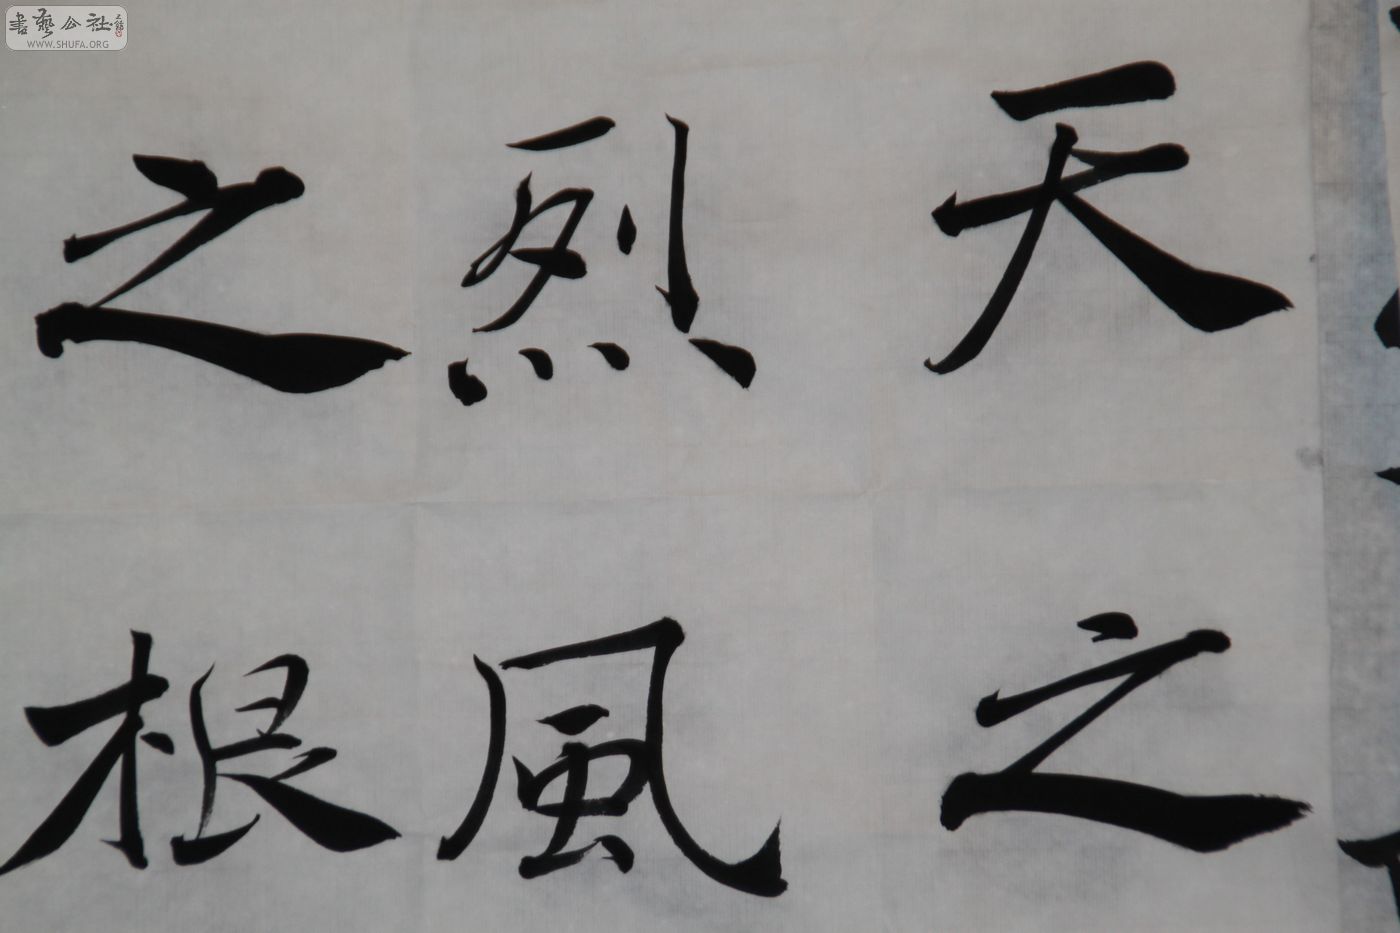 天之
烈風
之根
書藝公社
WWW.SHUFA.ORG